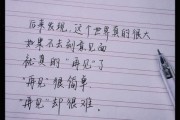 后来发现，这个世界真的很大
如果不去刻意见面
就真的"再见"了
"再见"很简单
"再见"却很难。